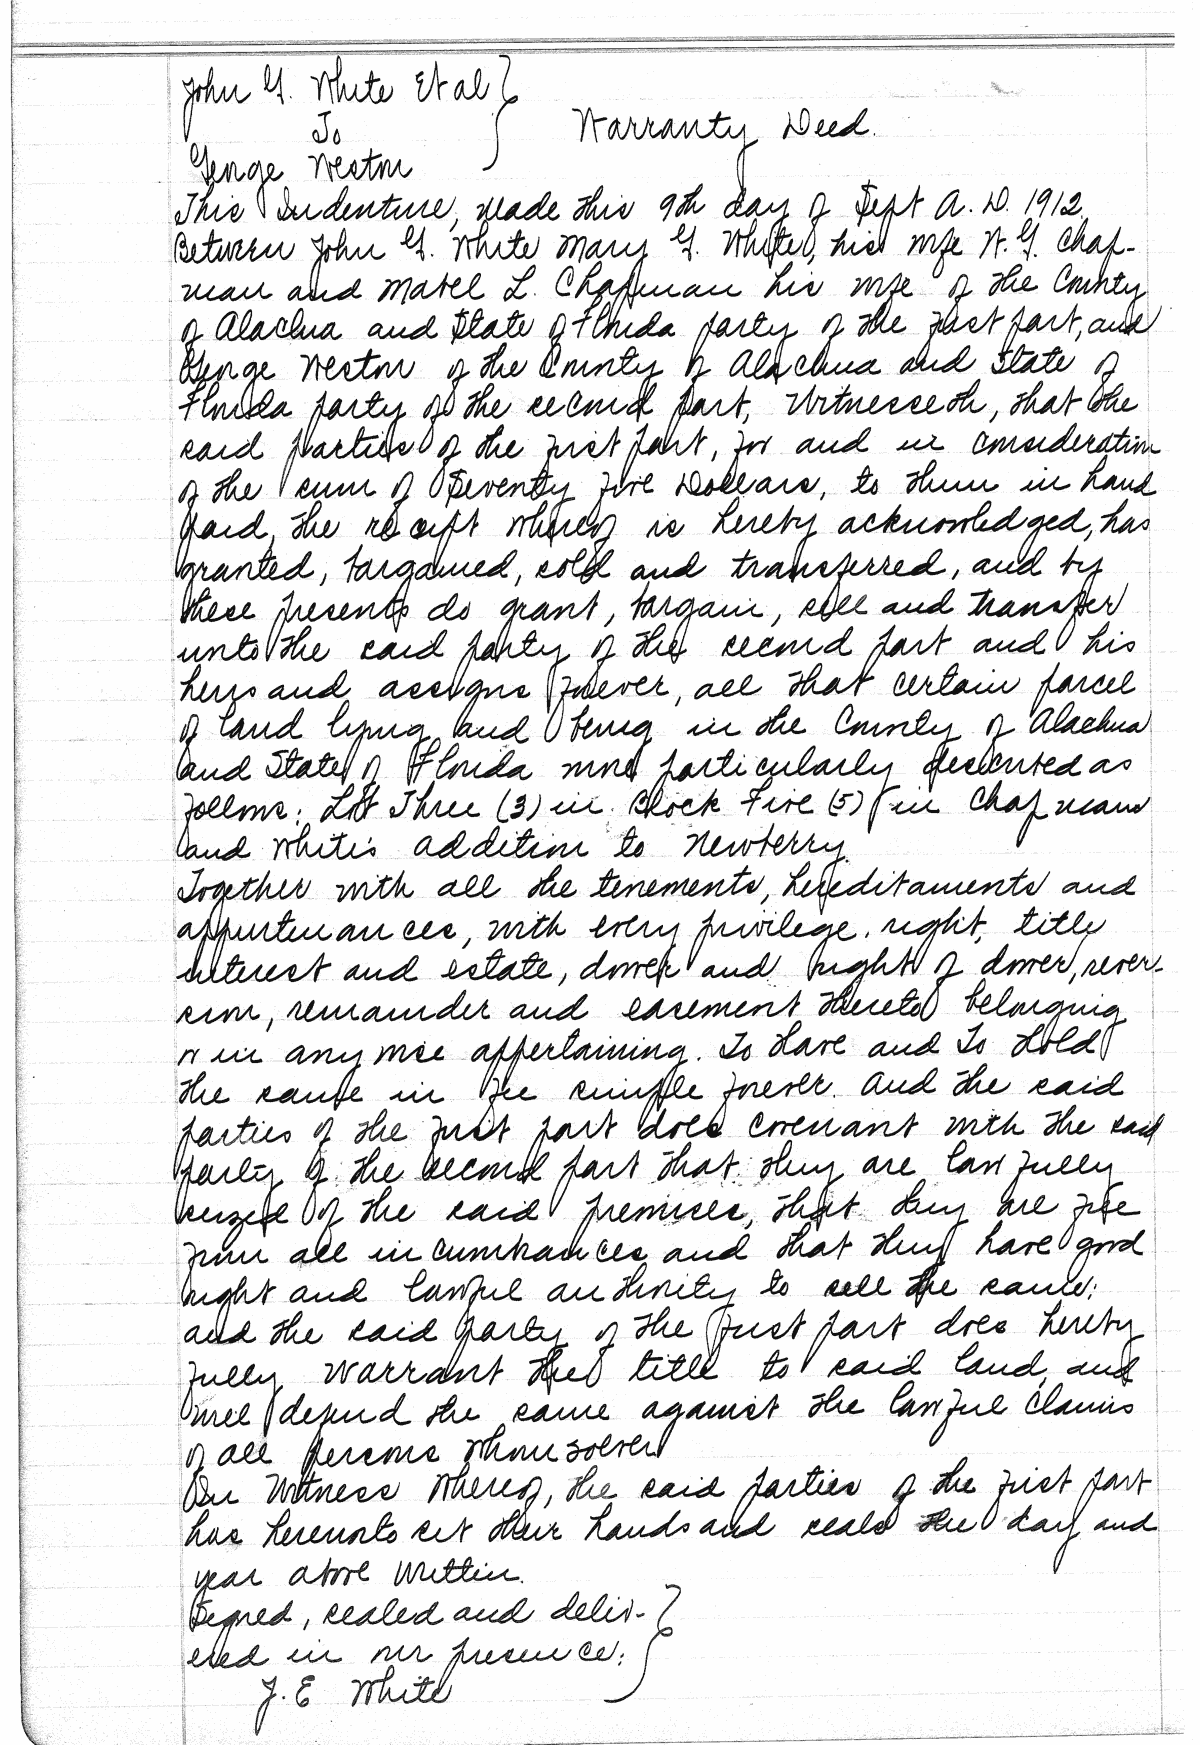 John G. White Et al
To
George Weston
Warranty Deed.
This Indenture, made this 9th day of Sept A.D. 1912.
Between John G. White Mary G. White, his wife W. G. Chap-
man and Mabel L. Chapman his wife of the County
of Alachua and State of Florida party of the first part, and
George Weston of the County of Alachua and State of
Florida party of the second part, Witnesseth, that the
said parties of the first part, for and in consideration
of the sum of Seventy five Dollars, to them in hand
paid, the receipt whereof is hereby acknowledged, has
granted, bargained, sold and transferred, and by
these presents do grant, bargain, sell and transfer
unto the said party of the second part and his
heirs and assigns forever, all that certain parcel
of land lying and being in the County of Alachua
and State of Florida more particularly described as
follows: Lot Three (3) in Block Five (5) in Chapman
and White's addition to Newberry.
Together with all the tenements, hereditaments and
appurtenances, with every privilege, right, title
interest and estate, dower and right of dower, rever-
sion, remainder and easement thereto belonging
or in anywise appertaining. To Have and To Hold
the same in fee simple forever. And the said
parties of the first part does covenant with the said
party of the second part that they are lawfully
seized of the said premises, that they are free
from all incumbrances and that they have good
right and lawful authority to sell the same;
and the said party of the first part does hereby
fully warrant the title to said land, and
will defend the same against the lawful claims
of all persons whomsoever
In Witness Whereof, the said parties of the first part
has hereunto set their hands and seals the day and
year above written.
Signed, sealed and deliv-
ered in our presence:
J. E White